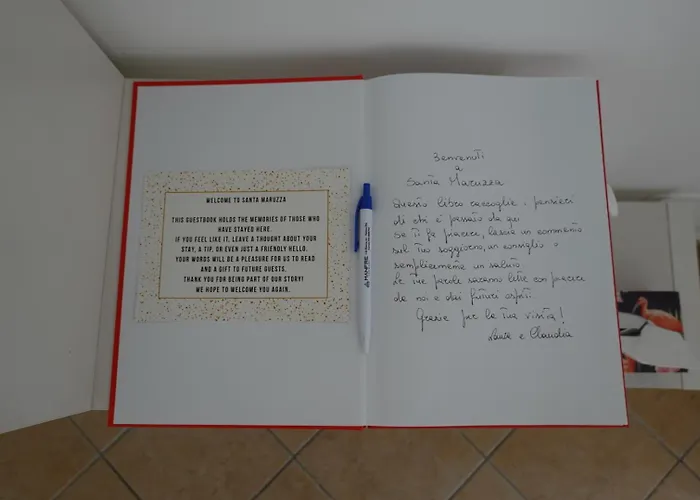 WELCOME TO SANTA MARUZZA
THIS GUESTBOOK HOLDS THE MEMORIES OF THOSE WHO
HAVE STAYED HERE.
IF YOU FEEL LIKE IT, LEAVE A THOUGHT ABOUT YOUR
STAY, A TIP, OR EVEN JUST A FRIENDLY HELLO.
YOUR WORDS WILL BE A PLEASURE FOR US TO READ
AND A GIFT TO FUTURE GUESTS.
THANK YOU FOR BEING PART OF OUR STORY!
WE HOPE TO WELCOME YOU AGAIN.
Benvenuti
a
Santa Maruzza
Questo libro raccoglie i pensieri
di chi è passato da qui
Se ti fa piacere, lascia un commento
sul tuo soggiorno, un consiglio o
semplicemente un saluto.
Le tue parole saranno lette con piacere
da noi e dai futuri ospiti.
Grazie per la tua visita!
e Claudia